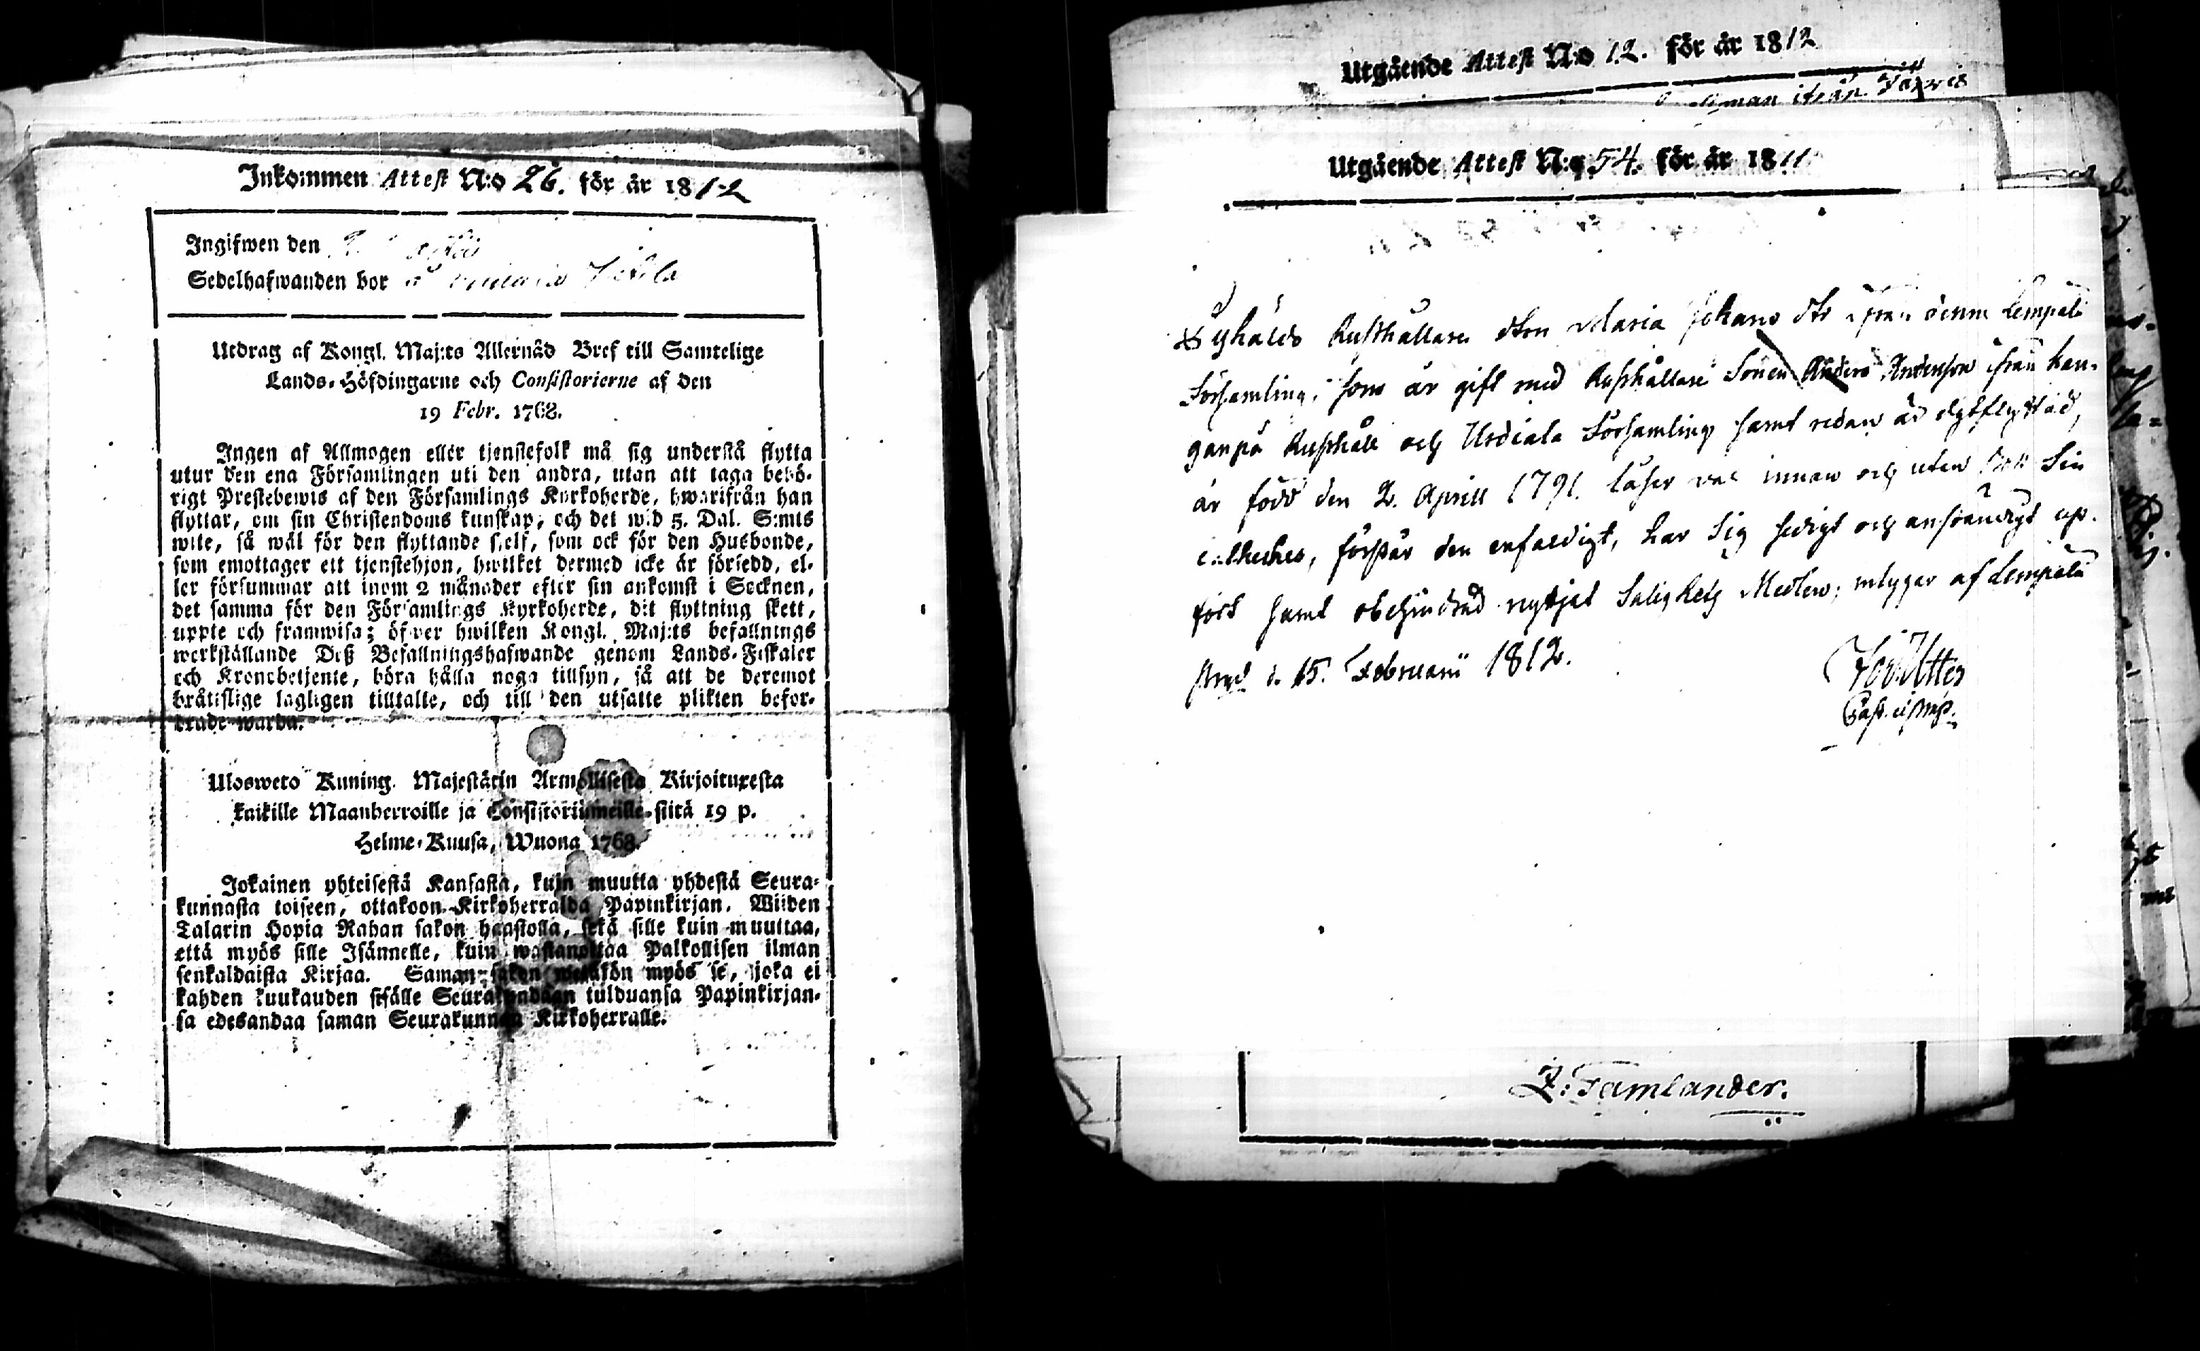 Inkommen Attest N:o 26. för år 1812
Ingifwen den
Sedelhafwanden bor
Utdrag af Kongl. Maj:ts Allernåd Bref till Samtelige
Lands-Höfdingarne och Consistorierne af den
19 Febr. 1768.
Ingen af Allmogen eller tjenstefolk må sig understå flytta
utur den ena Församlingen uti den andra, utan att taga behö-
rigt Prestebewis af den Församlings Kyrkoherde, hwarifrån han
flyttar, om sin Christendoms kunskap, och det wid 5. Dal. S:mts
wite, så wäl för den flyttande sielf, som ock för den Husbonde,
som emottager ett tjenstehjon, hwilket dermed icke är försedd, el-
ler försummar att inom 2 månader efter sin ankomst i Socknen,
det samma för den Församlings Kyrkoherde, dit flyttning skett,
uppte och framwisa; öfwer hwilken Kongl. Maj:ts befallnings
werkställande Deß Befallningshafwande genom Lands-Fiskaler
och Kronobetjente, böra hålla noga tillsyn, så att de deremot
bråtislige lagligen tilltalte, och till den utsatte plikten befor-
drade warda.
Ulosweto Kuning. Majestätin Armollisesta Kirjoituxesta
kaikille Maanherroille ja Consistoriumeille siitä 19 p.
Helme-Kuusa, Wuona 1768.
Jokainen yhteisestä Kansasta, kuin muutta yhdestä Seura-
kunnasta toiseen, ottakoon Kirkoherralda Papinkirjan, Wiiden
Talarin Hopia Rahan sakon haastolla, sekä sille kuin muuttaa,
että myös sille Isännelle, kuin wastanottaa Palkollisen ilman
senkaldaista Kirjaa. Saman sakon wetäkön myös se, joka ei
kahden kuukauden sisälle Seurakundaan tulduansa Papinkirjan-
sa edesandaa saman Seurakunnan Kirkoherralle.
Utgående Attest N:o 12. för år 1812
Utgående Attest N:o 54. för år 1811
Rusthållare dton Maria Johans dtr ifrån denna Lempälä
Församling, som är gift med Rusthållare Sonen Anders Andersson ifrån Kan-
ganpä Rusthåll och Urdiala Församling samt redan är dytflyttad,
är född den 2. Aprill 1791. läser väl innan och utan bok sin
catheches, förstår den enfaldigt, har sig sedigt och anständigt up-
fört samt obehindrad nyttjat Salighets Medlen; intygar af Lempälä
d. 15. Februarii 1812.
Z: Tamlander.